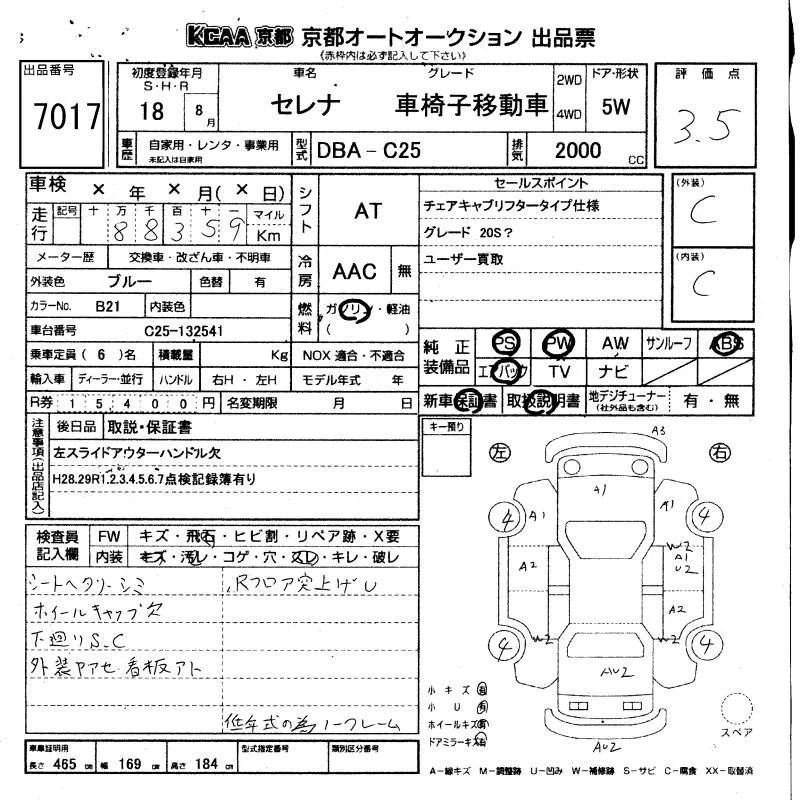 KCAA 京都 京都オートオークション 出品票
《赤枠内は必ず記入して下さい》
出品番号
7017
初度登録年月
S・H・R
18 8月
車名 グレード
セレナ 車椅子移動車
2WD
4WD
ドア・形状
5W
評価点
3.5
車歴 自家用・レンタ・事業用
未記入は自家用
型式 DBA-C25
排気 2000 CC
車検 × 年 × 月( × 日)
走行 記号 十 万 千 百 十 一 マイル
8 8 3 5 9 Km
メーター歴 交換車・改ざん車・不明車
外装色 ブルー 色替 有
カラーNo. B21 内装色
車台番号 C25-132541
乗車定員 ( 6 )名 積載量 Kg NOX 適合・不適合
輸入車 ディーラー・並行 ハンドル 右H・左H モデル年式 年
R券 15400円 名変期限 月 日
シフト AT
冷房 AAC 無
燃料 ガソリン・軽油
( )
セールスポイント
チェアキャブリフタータイプ仕様
グレード 20S?
ユーザー買取
(外装)
C
(内装)
C
純正装備品 PS PW AW サンルーフ ABS
エアバック TV ナビ
新車保証書 取扱説明書 地デジチューナー
(社外品も含む) 有・無
注意事項(出品店記入)
後日品 取説・保証書
左スライドアウターハンドル欠
H28.29R1.2.3.4.5.6.7点検記録簿有り
キー預り
検査員記入欄 FW キズ・飛石・ヒビ割・リペア跡・X要
内装 キズ・汚レ・コゲ・穴・スレ・キレ・破レ
シートヘタリ-シミ
ホイールキャップ欠
下廻りS.C
外装ヤケアセ 看板アト
Rフロア突上げU
低年式の為ノークレーム
左 右
A3
A1
4 A1 A1 4
W2
A1
U2
A2
A2
W2 W2
4 4
AU2
AU2
小キズ 有
小U 有
ホイールキズ 有
ドアミラーキズ 有
スペア
車庫証明用
長さ 465 cm 幅 169 cm 高さ 184 cm
型式指定番号
類別区分番号
A-線キズ M-調整跡 U-凹み W-補修跡 S-サビ C-腐食 XX-取替済